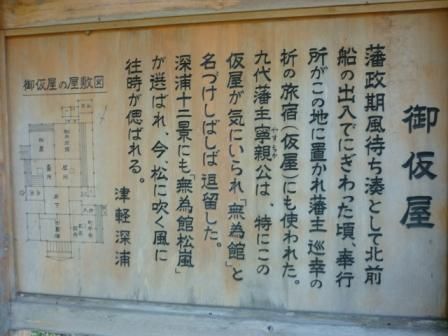 御仮屋
藩政期風待ち湊として北前
船の出入でにぎわった頃、奉行
所がこの地に置かれ藩主巡幸の
折の旅宿(仮屋)にも使われた。
九代藩主寧親公は、特にこの
やすちか
仮屋が気にいられ「無為館」と
名づけしばしば逗留した。
深浦十二景にも「無為館松嵐」
が選ばれ、今松に吹く風に
往時が偲ばれる。
津軽深浦
御仮屋の屋敷図